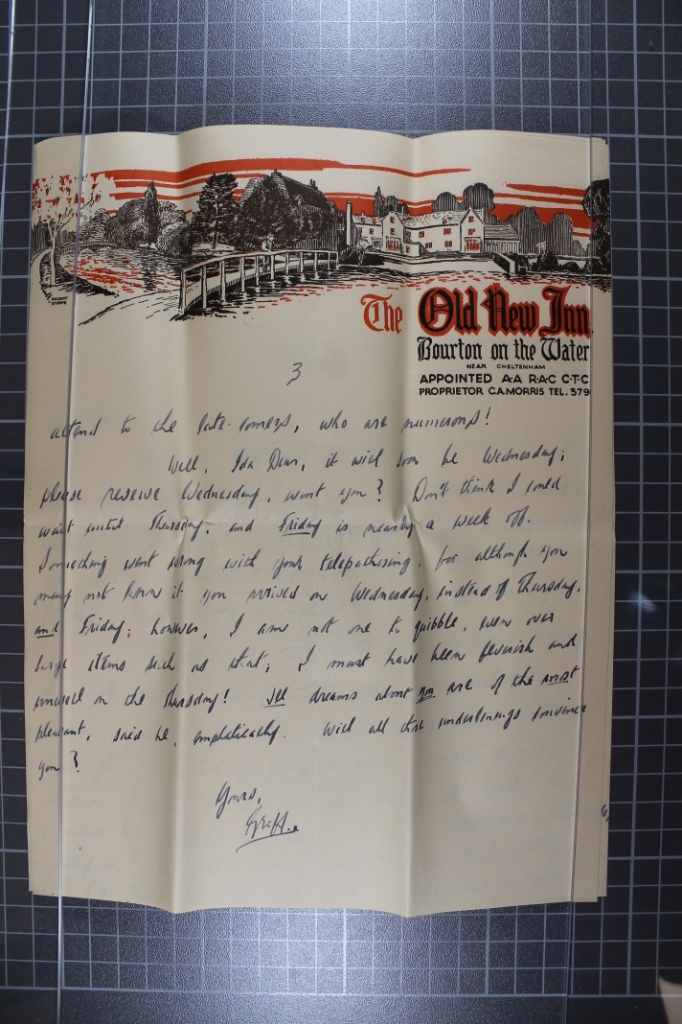 The Old New Inn
Bourton on the Water
NEAR CHELTENHAM
APPOINTED A·A R·A·C C·T·C
PROPRIETOR C.A.MORRIS TEL. 379
3
attend to the late-comers, who are numerous!
Well, Ida Dear, it will soon be Wednesday;
please reserve Wednesday, wont you? Don't think I could
wait until Thursday, and Friday is nearly a week off.
Something went wrong with your telepathising, for although you
may not know it you arrived on Wednesday, instead of Thursday,
and Friday; however, I am not one to quibble, even over
large items such as that; I must have been feverish and
unwell on the Thursday! All dreams about you are of the most
pleasant, said he, emphatically. Will all these underlinings convince
you?
Yours,
Griff.